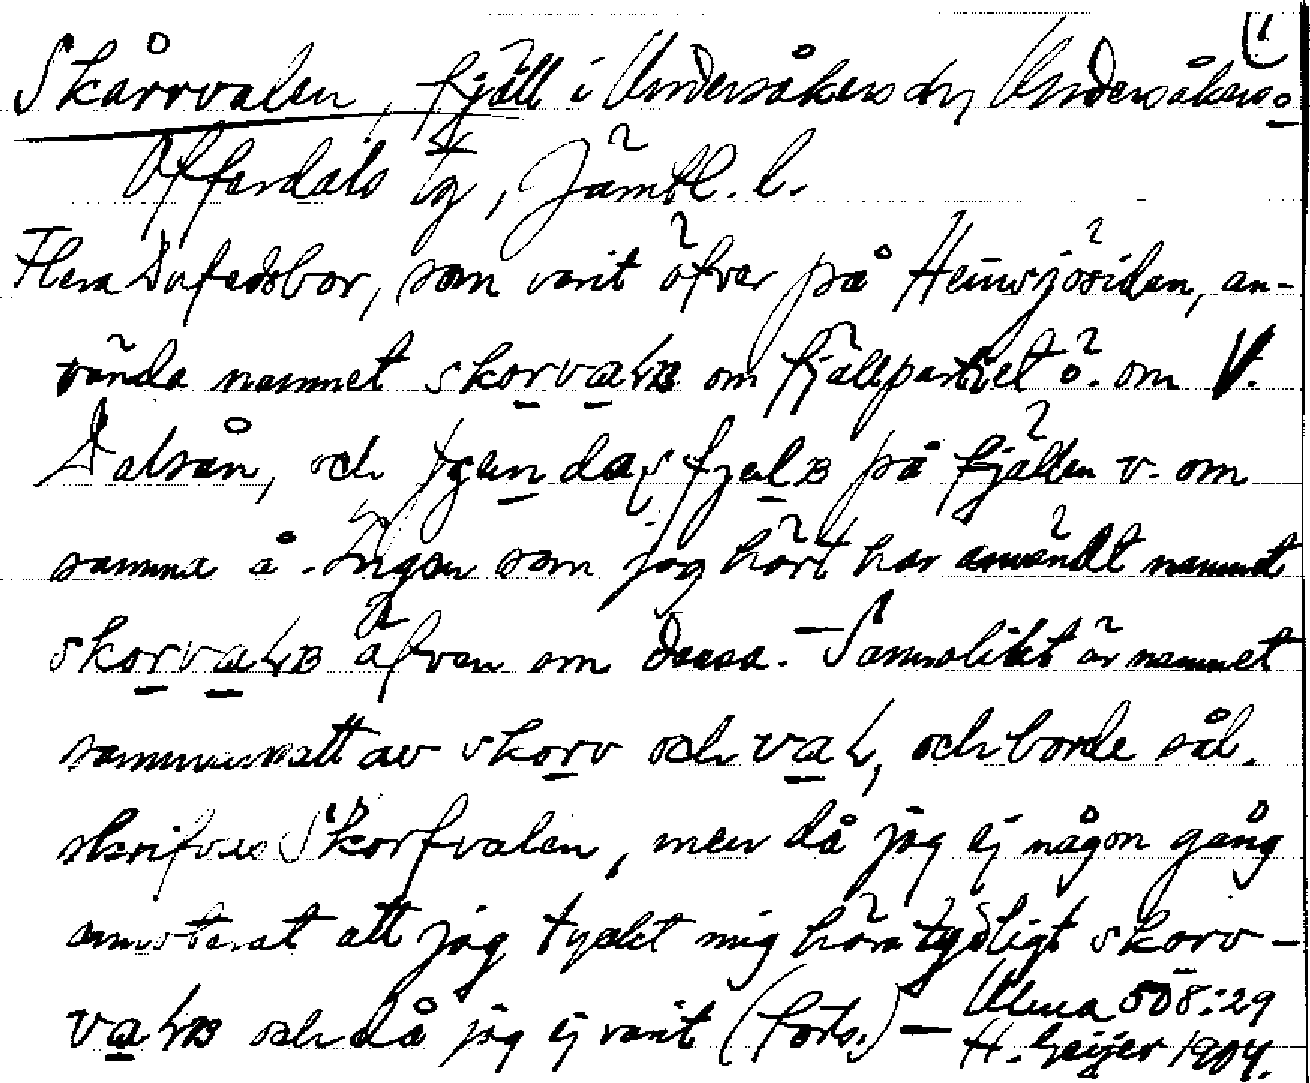 (1
Skårrvalen, fjäll i Undersåkers sn, Undersåkers o.
Offerdals tg, Jämtl. l.
Flera Dufedsbor, som varit öfver på Häusjösidan, an-
vända namnet skorvalɴ om fjällpartiet ö. om V.
Dalsån, och fjället på fjällen v. om
samma å. Ingen som jag hört har användt namnet
skorvalɴ äfven om dessa. – Sannolikt är namnet
sammansatt av skorv och val, och borde sål.
skrifvas Skorfvalen, men då jag ej någon gång
annoterat att jag tyckt mig höra tydligt skorv-
valɴ och då jag ej varit (forts.) – Ulma 508:29
H. Geijer 1904.